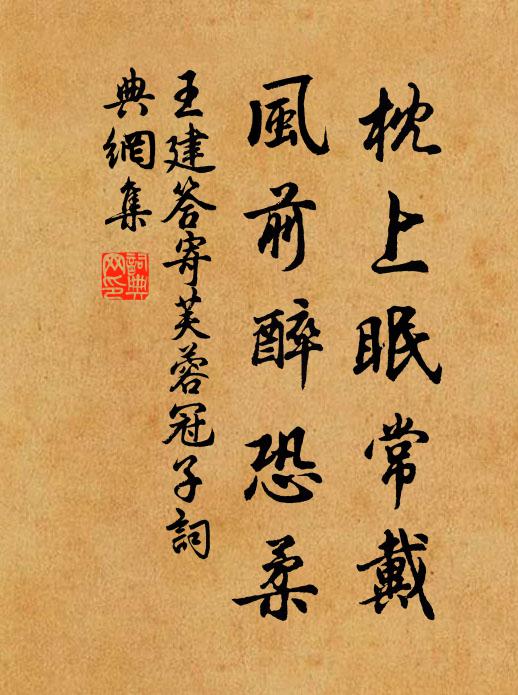 枕上眠常戴
風前醉恐柔
王建答寄芙蓉冠子詞
典網集
詞典網印